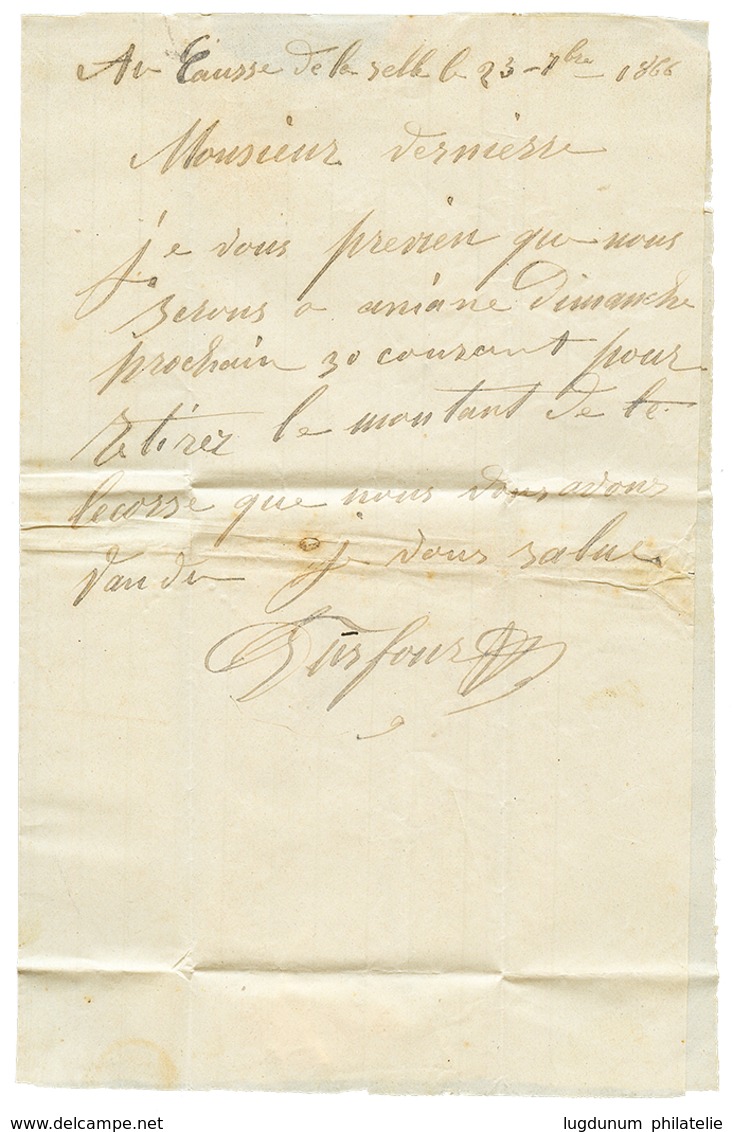 Au Causse de la selle le 23 - 7bre 1866
Monsieur dernierre
je vous previen que nous
serons a aniane Dimanche
prochain 30 courant pour
retirez le montant de le
lecorse que nous vous avons
vandu je vous salue
Durfour
delcampe.net
lugdunum philatelie